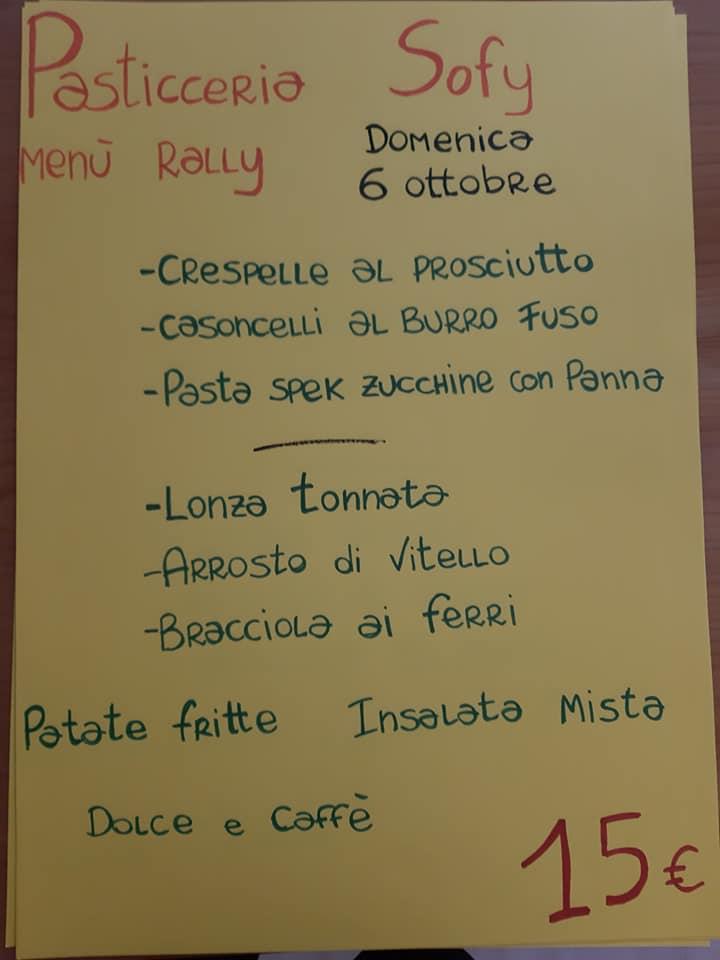 Pasticceria Sofy
Menù Rally
Domenica
6 ottobre
-Crespelle al prosciutto
-Casoncelli al burro fuso
-Pasta spek zucchine con panna
-Lonza tonnata
-Arrosto di vitello
-Bracciola ai ferri
Patate fritte Insalata mista
Dolce e caffè
15€